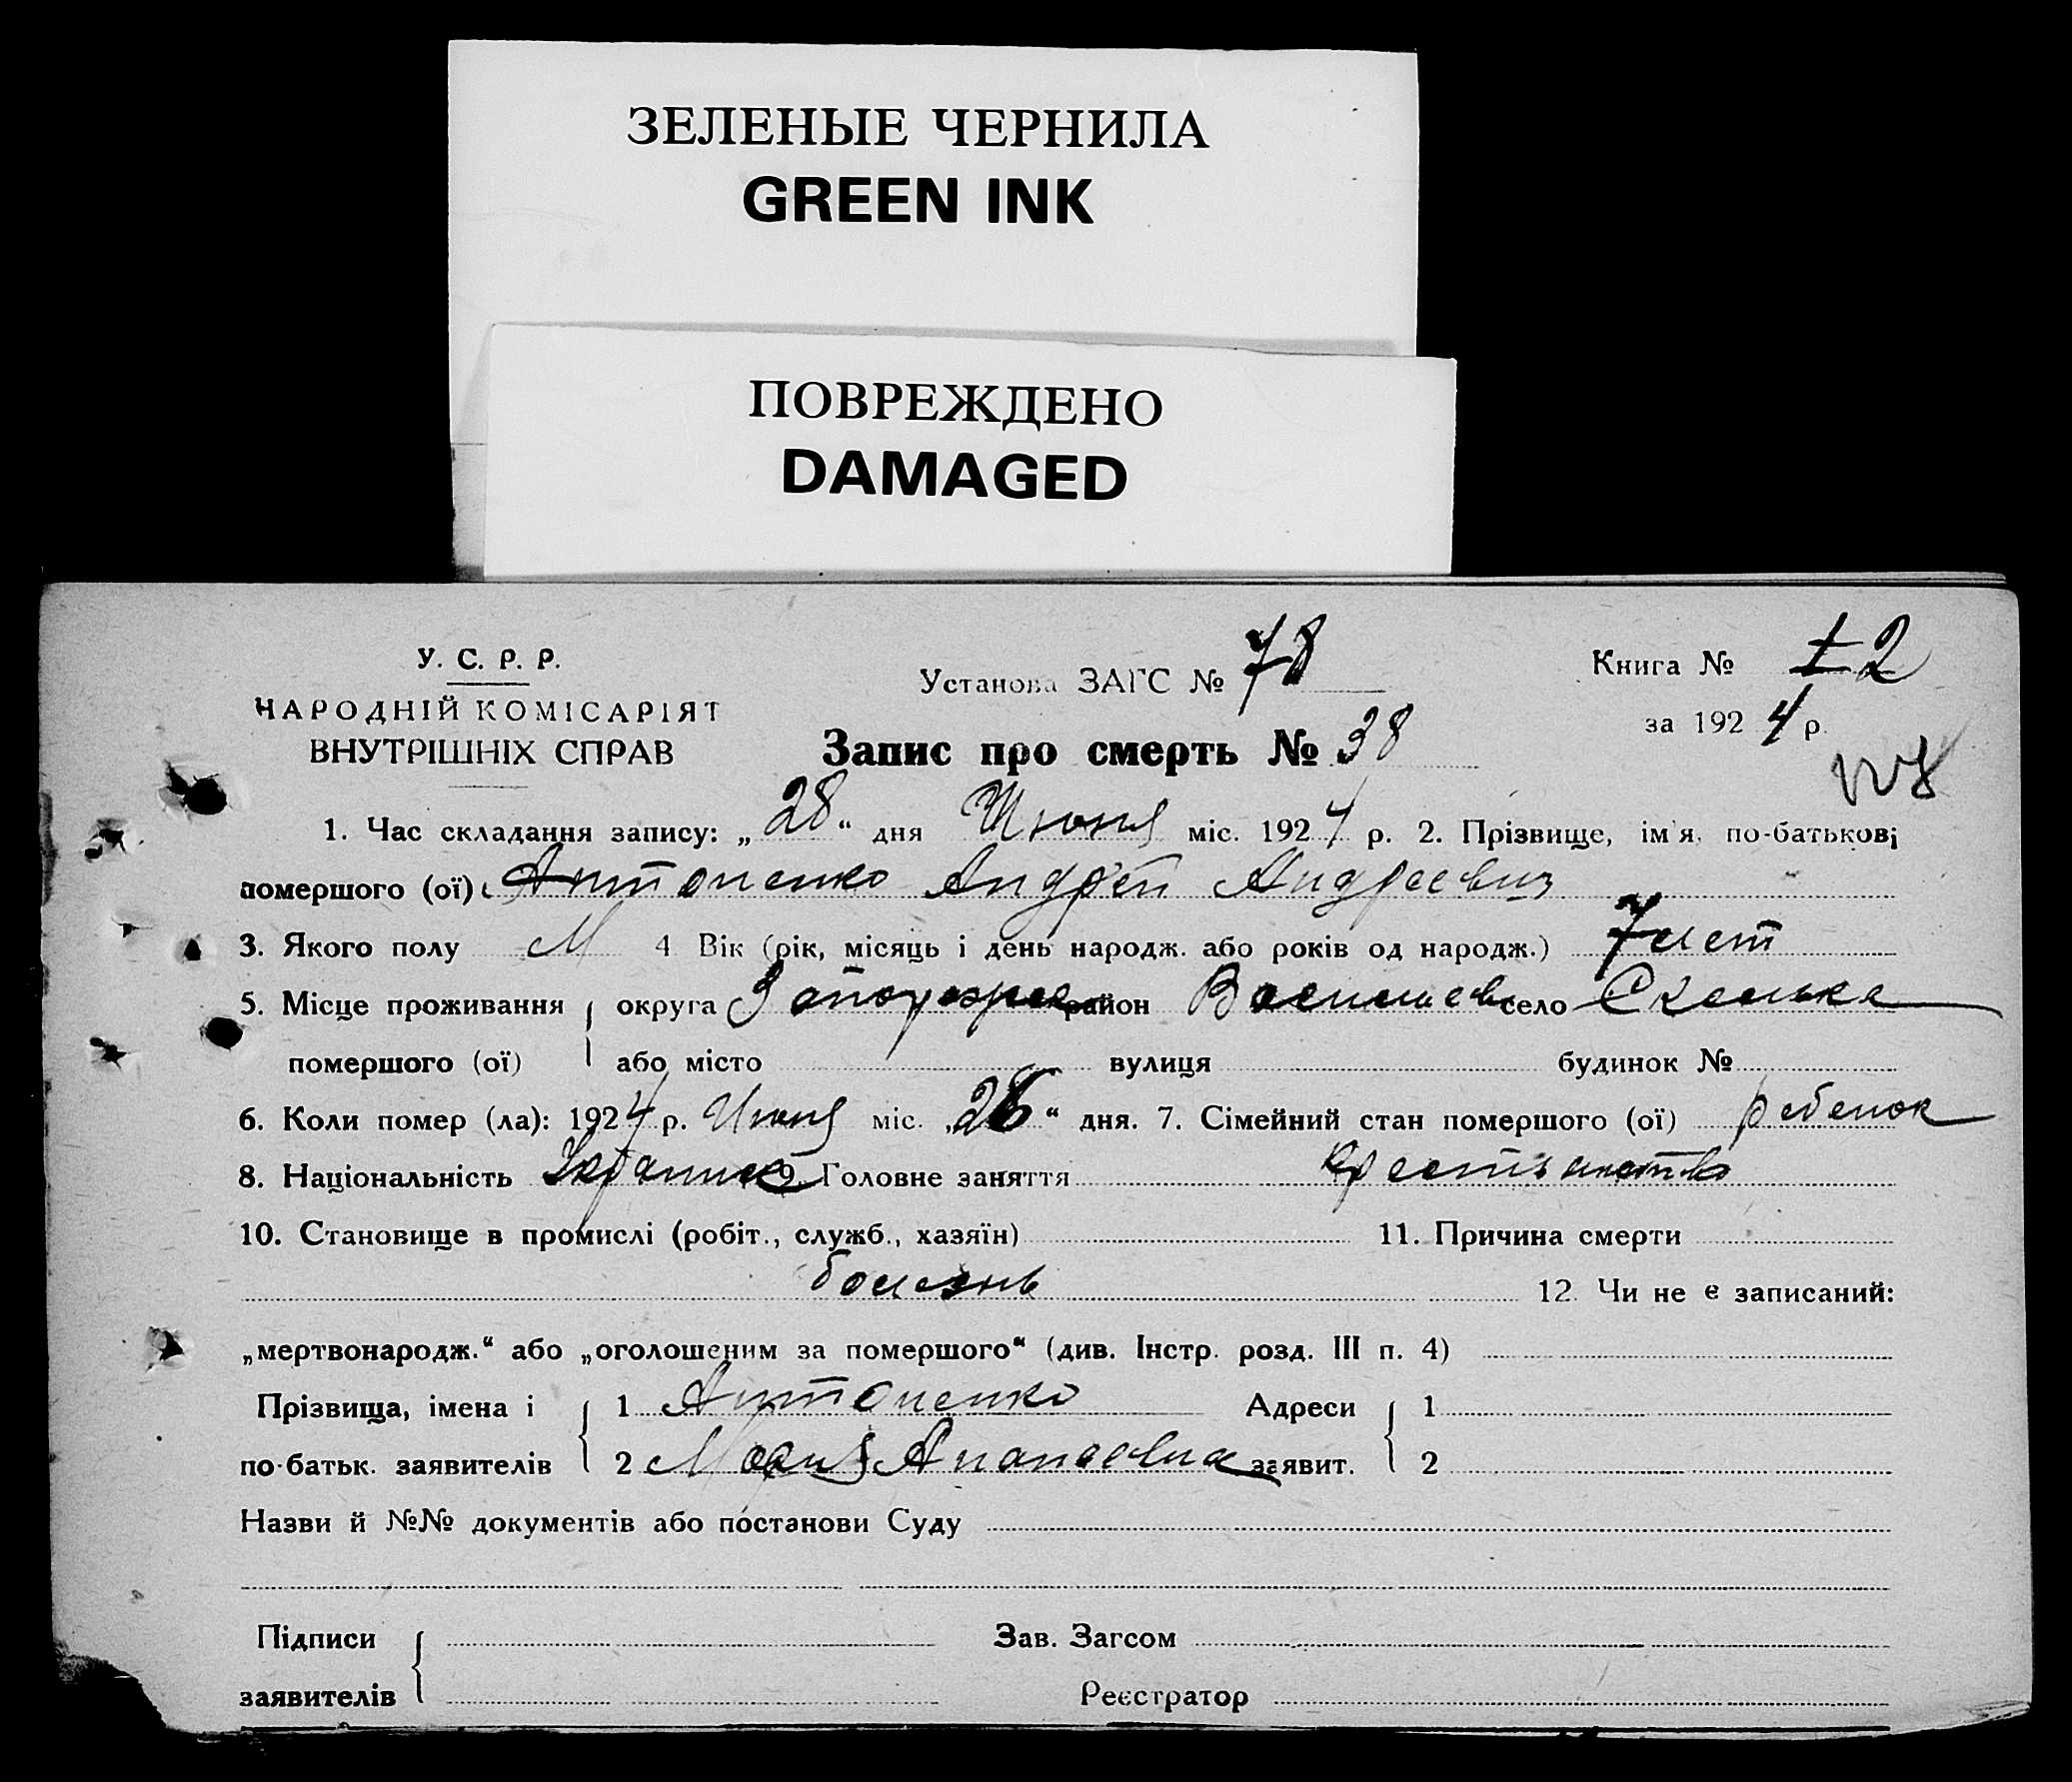 ЗЕЛЕНЫЕ ЧЕРНИЛА
GREEN INK
ПОВРЕЖДЕНО
DAMAGED
У. С. Р. Р.
НАРОДНІЙ КОМІСАРІЯТ
ВНУТРІШНІХ СПРАВ
Установа ЗАГС № 78
Книга № 1 2
за 1924 р.
Запис про смерть № 38
1. Час складання запису: „28“ дня Июня міс. 1924 р. 2. Прізвище, ім'я, по-батькові
помершого (ої) Антоненко Андрей Андреевич
3. Якого полу М 4 Вік (рік, місяць і день народж. або років од народж.) 7 лет
5. Місце проживання округа Запорожск район Васишев село Скелька
помершого (ої) або місто вулиця будинок №
6. Коли помер (ла): 1924 р. Июня міс. „26“ дня. 7. Сімейний стан помершого (ої) ребенок
8. Національність Украинец 9. Головне заняття крестьянство
10. Становище в промислі (робіт., служб., хазяїн) 11. Причина смерти
болезнь 12. Чи не є записаний:
„мертвонародж.“ або „оголошеним за помершого“ (див. Інстр. розд. III п. 4)
Прізвища, імена і 1 Антоненко Адреси 1
по-батьк. заявителів 2 Мария Анапаевна заявит. 2
Назви й №№ документів або постанови Суду
Підписи Зав. Загсом
заявителів Реєстратор